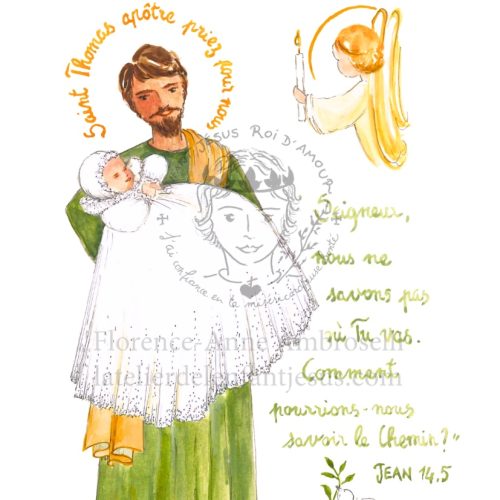 Saint Thomas apôtre priez pour nous
Seigneur,
nous ne
savons pas
où Tu vas.
Comment
pourrions-nous
savoir le Chemin?"
JEAN 14.5
JÉSUS ROI D'AMOUR
J'ai confiance en ta miséricordieuse bonté
Florence-Anne Ambroselli
latelierdelenfantjesus.com